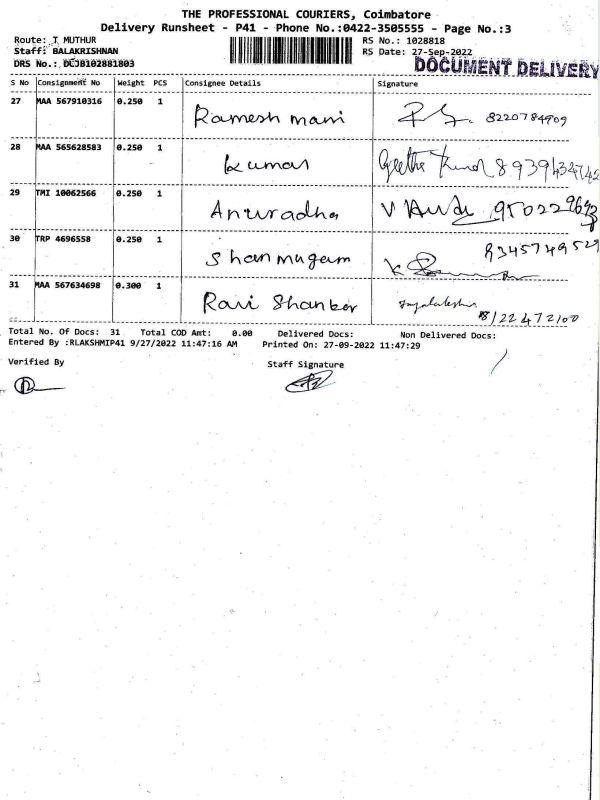 THE PROFESSIONAL COURIERS, Coimbatore
Delivery Runsheet - P41 - Phone No.:0422-3505555 - Page No.:3
Route: T MUTHUR
RS No.: 1028818
Staff: BALAKRISHNAN
RS Date: 27-Sep-2022
DRS No.: DCJB102881803
DOCUMENT DELIVERY
S No Consignment No Weight PCS Consignee Details Signature
27 MAA 567910316 0.250 1 Ramesh mani 8220784909
28 MAA 565628583 0.250 1 kumar Geetha
29 TMI 10062566 0.250 1 Anuradha V
30 TRP 4696558 0.250 1 Shanmugam K
31 MAA 567634698 0.300 1 Ravi Shankar
Total No. Of Docs: 31 Total COD Amt: 0.00 Delivered Docs: Non Delivered Docs:
Entered By :RLAKSHMIP41 9/27/2022 11:47:16 AM Printed On: 27-09-2022 11:47:29
Verified By Staff Signature